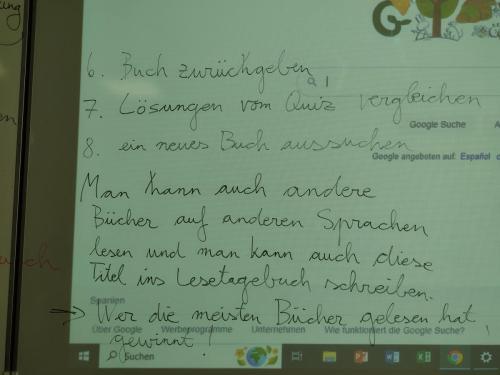 6. Buch zurückgeben
7. Lösungen vom Quiz vergleichen
Google Suche
8. ein neues Buch aussuchen
Google angeboten auf: Español
Man kann auch andere
Bücher auf anderen Sprachen
lesen und man kann auch diese
Titel ins Lesetagebuch schreiben.
Spanien
→ Wer die meisten Bücher gelesen hat,
Über Google Werbeprogramme Unternehmen Wie funktioniert die Google Suche?
gewinnt!
Suchen